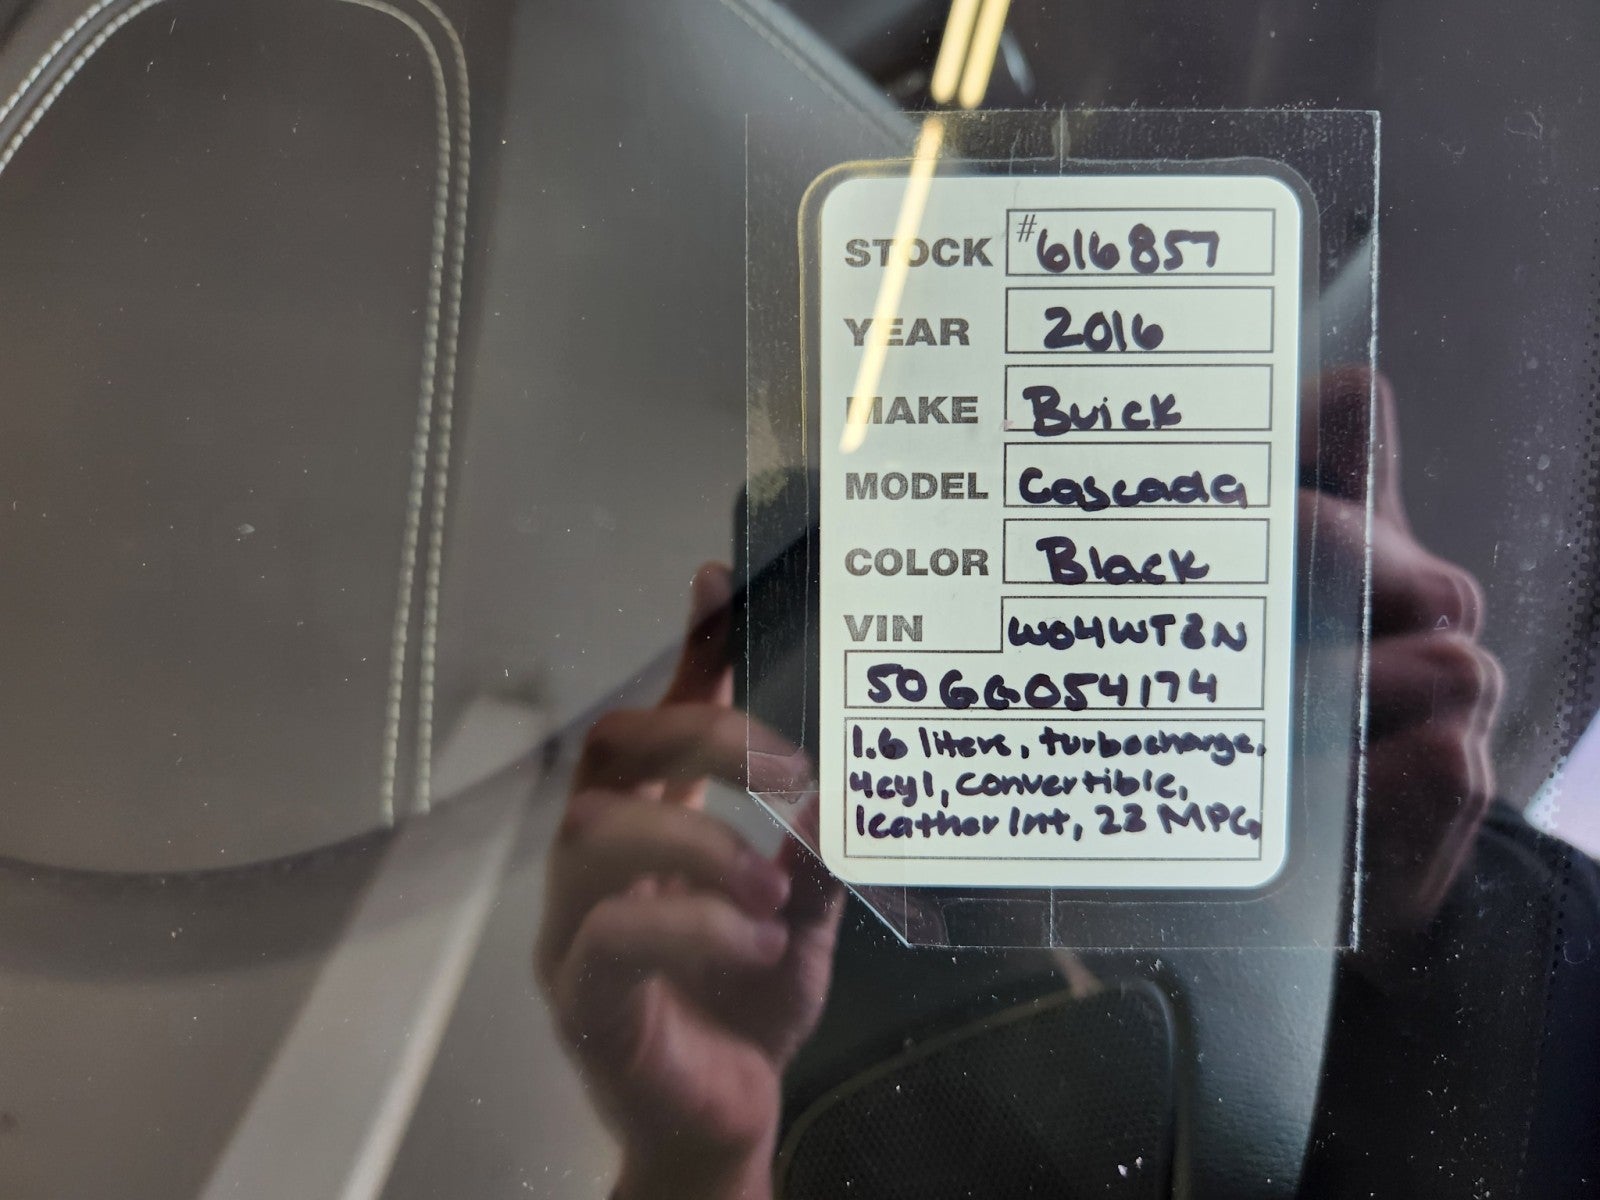 STOCK #616857
YEAR 2016
MAKE Buick
MODEL Cascada
COLOR Black
VIN W04WT3N
50GG054174
1.6 liters, turbocharge,
4cyl, convertible,
leather Int, 23 MPG,